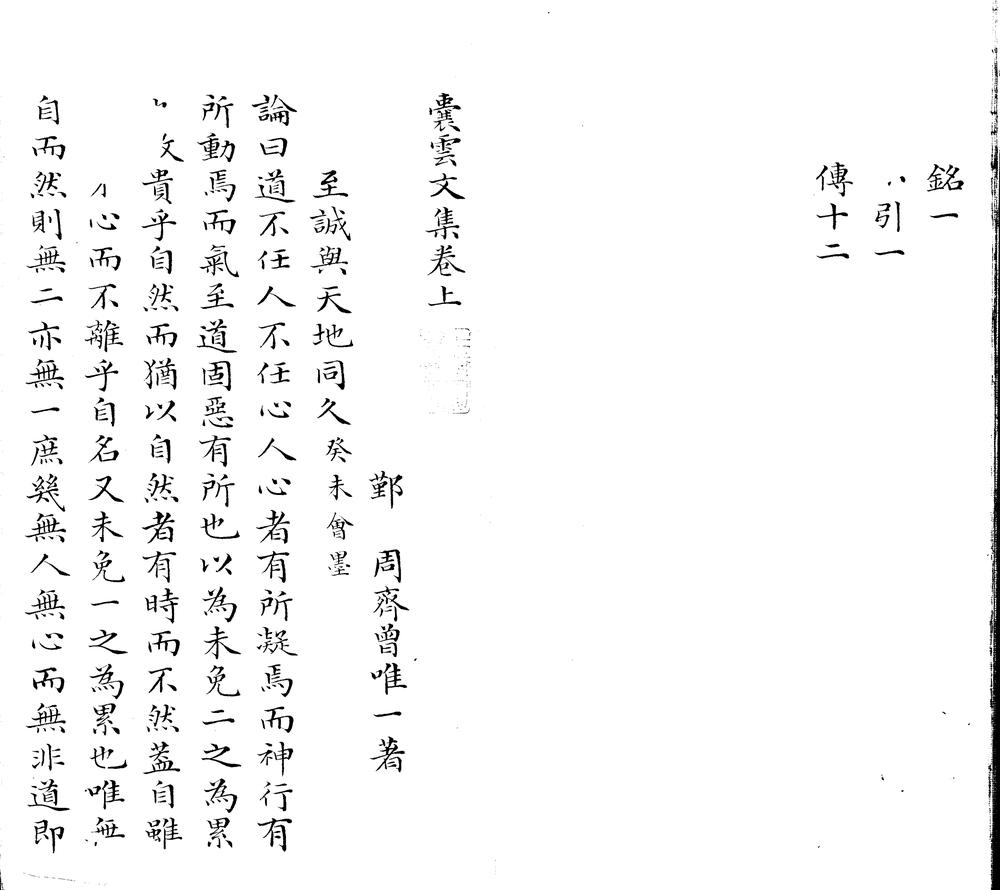 銘一
引一
傳十二
囊雲文集卷上
鄞 周齊曾唯一著
至誠與天地同久癸未會墨
論曰道不任人不任心人心者有所凝焉而神行有
所動焉而氣至道固惡有所也以為未免二之為累
文貴乎自然而猶以自然者有時而不然葢自雖
心而不離乎自名又未免一之為累也唯無
自而然則無二亦無一庶幾無人無心而無非道即